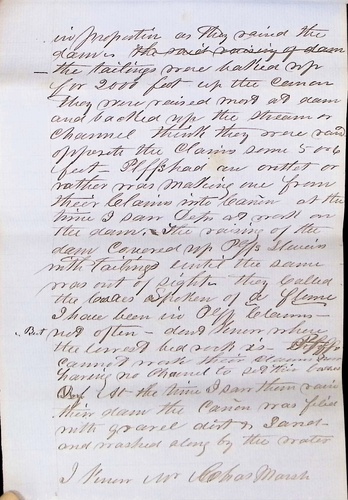 in proportion as they raised the
dams the said raising of dam
the tailings were backed up
for 2000 feet up the Canon
they were raised most at dam
and backed up the stream or
Channel think they were raised
opposite the Claims some 5 or 6
feet - Plffs had an outlet or
rather was making one from
their Claims into Canon at the
time I saw Defts at work on
the dam. The raising of the
dam Covered up Plffs Sluices
with tailings until the same
was out of sight they Called
the boxes spoken of a flume
I have been in Plff Claims -
But not often - dont know where
the lowest bed rock is - Plffs
cannot work their claims now
having no Channel to set their boxes
At the time I saw them raise
their dam the Canon was filled
with gravel dirt & Sand
and washed along by the water
I know Mr Marsh